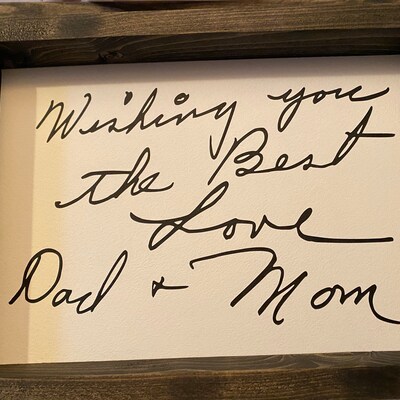 Wishing you
the Best
Love
Dad + Mom